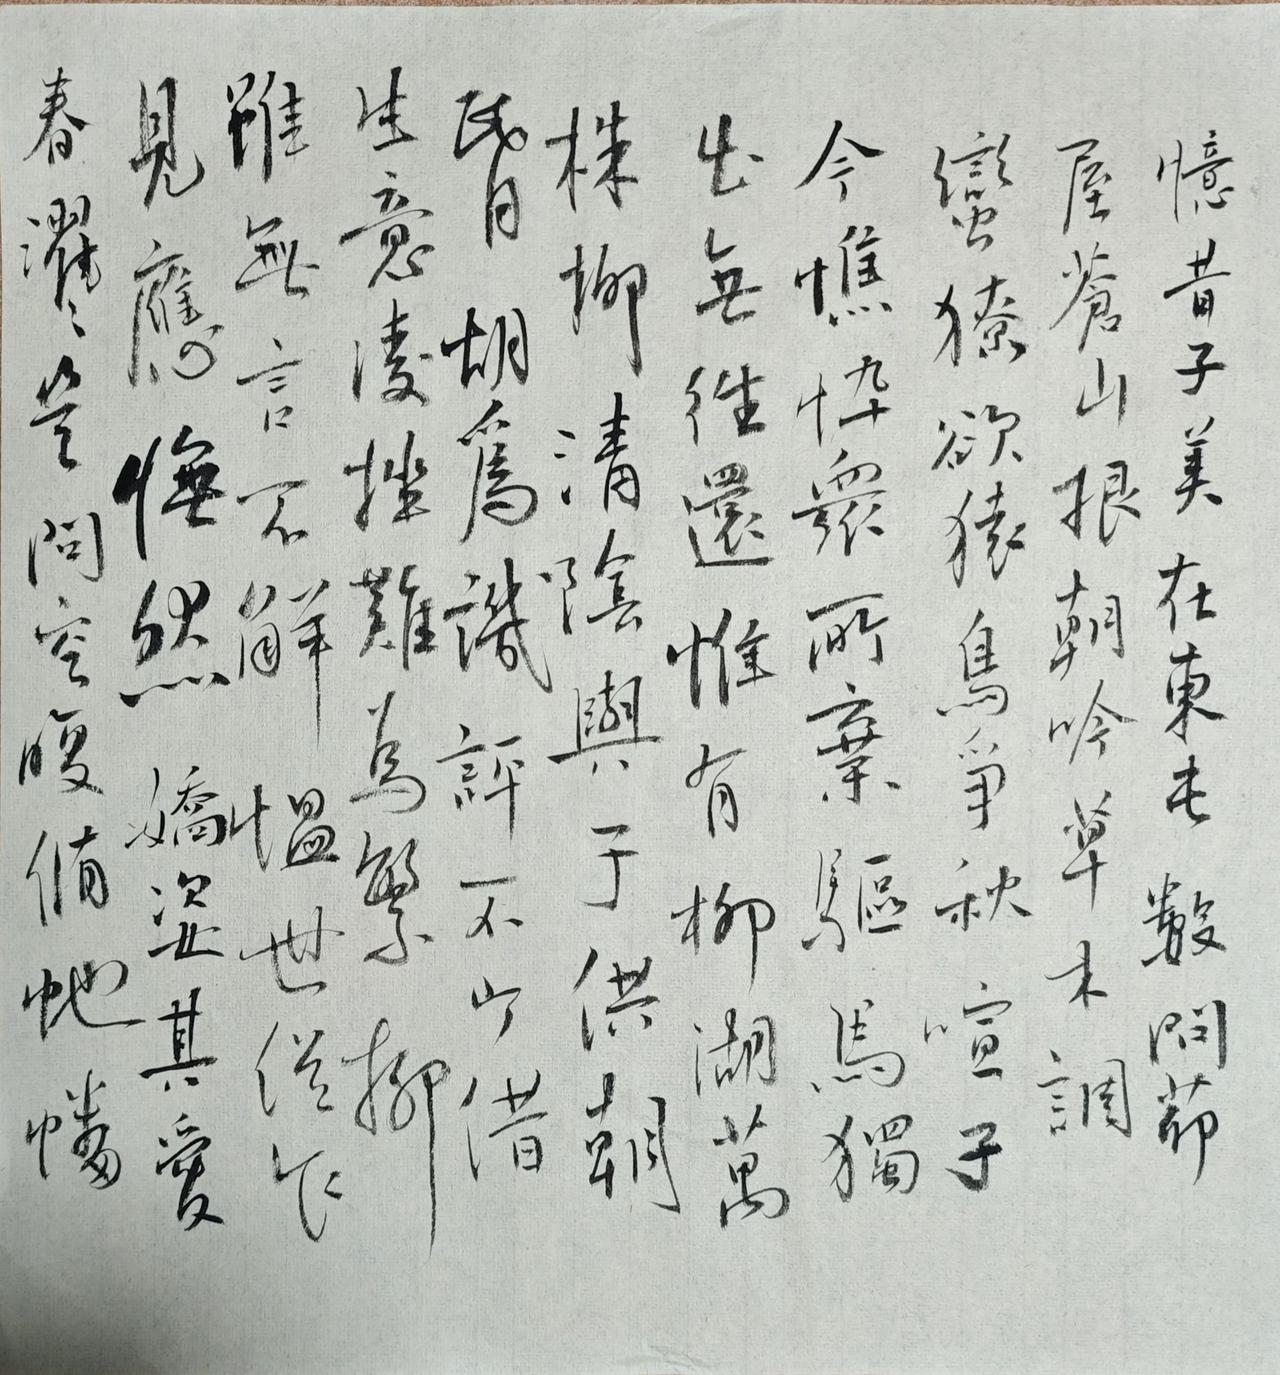 憶昔子美在東屯數間茆
屋蒼山根朝吟草木調
蠻獠欲猿鳥爭秋喧子
今憔悴眾所棄驅馬獨
出無往還惟有柳湖萬
株柳清陰與于供朝
昏胡為譏評不少借
生意凌挫難為繁柳
雖無言不解慍世俗乍
見應憮然嬌姿共愛
春濯〻豈問空腹脩虵蟠